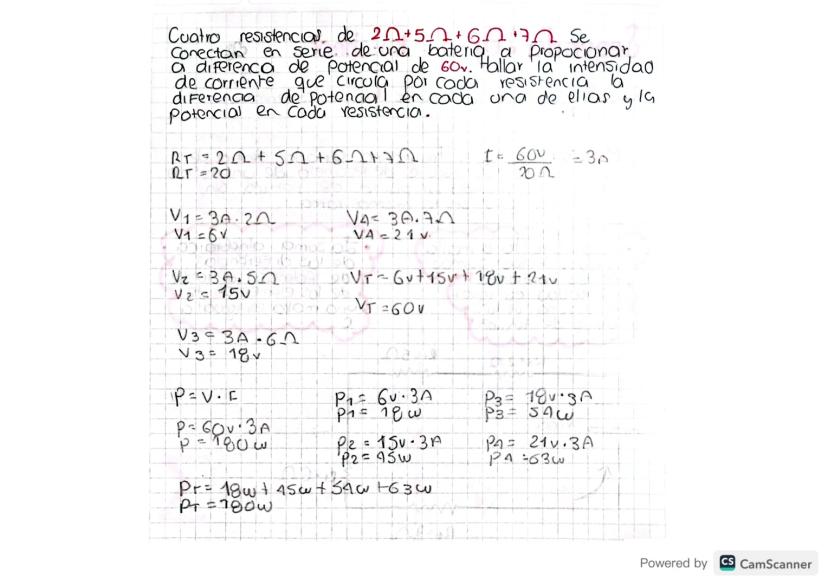 Cuatro resistencias de 2Ω+5Ω+6Ω+7Ω Se
conectan en serie de una bateria a Propocionar
a diferenca de Potencial de 60v. Hallar la intensidad
de corriente que circula por cada resistencia la
diferencia de potencial en cada una de ellas y la
Potencial en cada resistencia.
RT = 2Ω + 5Ω + 6Ω+7Ω
RT = 20
I = 60v / 20Ω = 3A
V1 = 3A·2Ω
V1 = 6V
V4 = 3A.7Ω
V4 = 21 v
V2 = 3A.5Ω
V2 = 15v
VT = 6v+15v+18v+21v
VT = 60v
V3 = 3A·6Ω
V3 = 18v
P = V·I
P = 60v·3A
P = 180w
P1 = 6v·3A
P1 = 18w
P2 = 15v·3A
P2 = 45w
P3 = 18v·3A
P3 = 54w
P4 = 21v.3A
P4 = 63w
PT = 18w+45w+54w+63w
PT = 180w
Powered by CS CamScanner